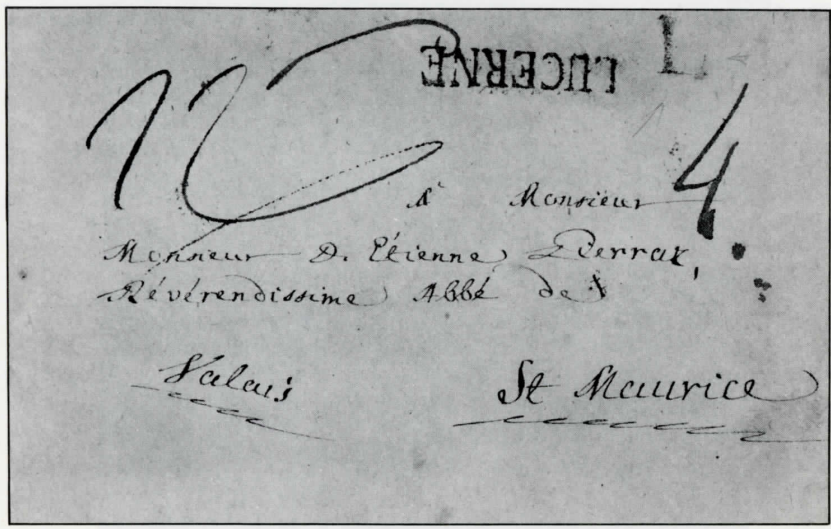 LUCERNE
4
A Monsieur
Monsieur D. Etienne Pierraz,
Révérendissime Abbé de
Valais St Maurice